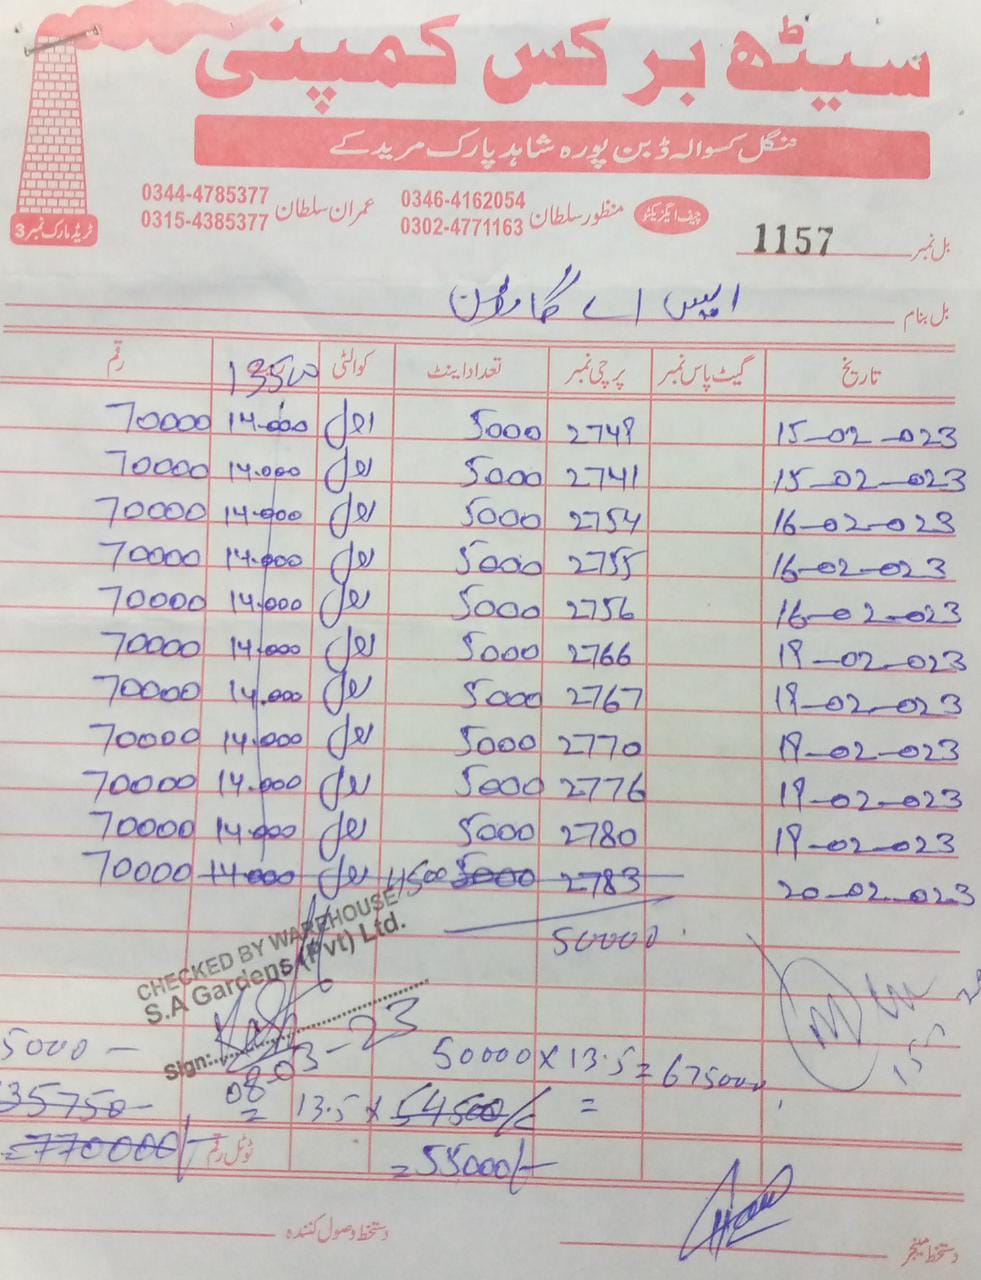 سیٹھ برکس کمپنی
ننگل کسوالہ ڈبن پورہ شاہد پارک مریدکے
چیف ایگزیکٹو منظور سلطان 0346-4162054 0302-4771163 عمران سلطان 0344-4785377 0315-4385377
ٹریڈ مارک نمبر 3
بل نمبر 1157
بل بنام ایس اے گارڈن
تاریخ گیٹ پاس نمبر پرچی نمبر تعداد اینٹ کوالٹی 13500 رقم
15-02-023 2749 5000 اول 14.000 70000
15-02-023 2741 5000 اول 14.000 70000
16-02-023 2754 5000 اول 14.000 70000
16-02-023 2755 5000 اول 14.000 70000
16-02-023 2756 5000 اول 14.000 70000
19-02-023 2766 5000 اول 14.000 70000
19-02-023 2767 5000 اول 14.000 70000
19-02-023 2770 5000 اول 14.000 70000
19-02-023 2776 5000 اول 14.000 70000
19-02-023 2780 5000 اول 14.000 70000
20-02-023 2783 5000 4500 اول 14.000 70000
50000
CHECKED BY WAREHOUSE
S.A Gardens (Pvt) Ltd.
Sign:
08-03-23
50000 × 13.5 = 675000
5000 —
13.5 × 54500/- =
35750-
ٹوٹل رقم 770000/-
= 55000/-
دستخط منیجر
دستخط وصول کنندہ